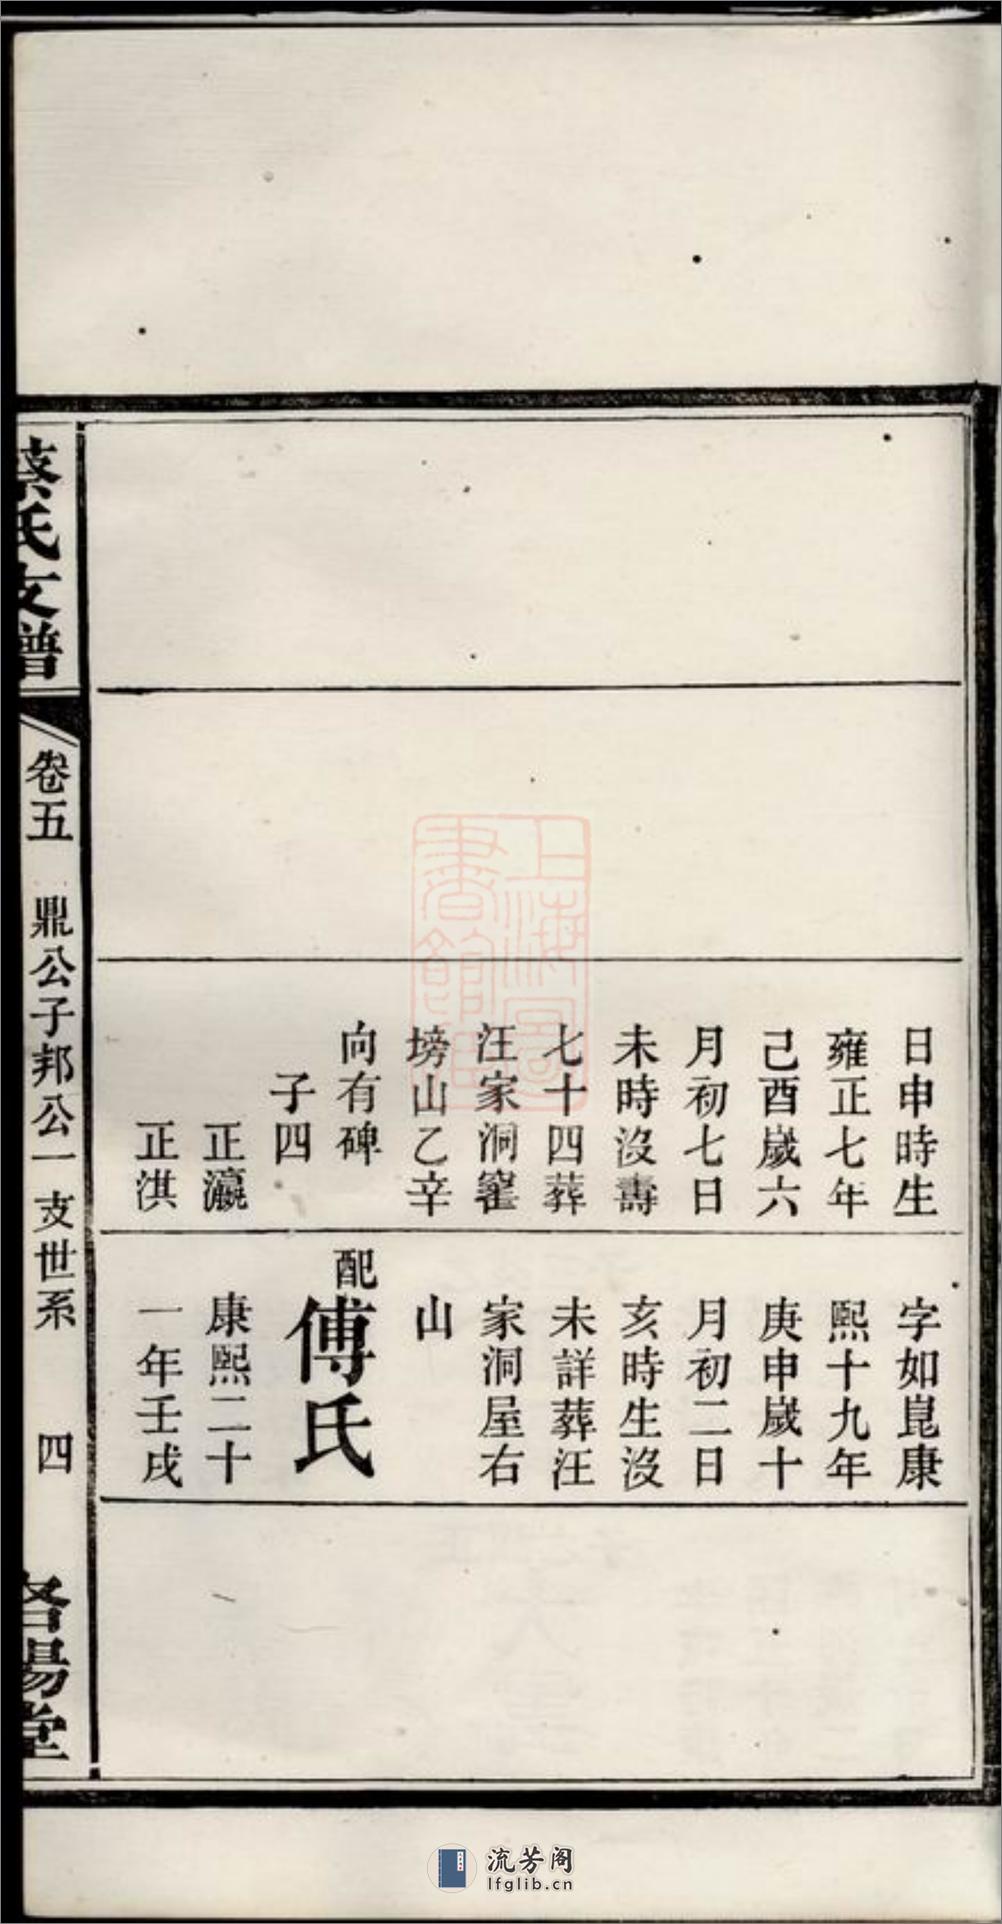 日申時生
雍正七年
己酉嵗六
月初七日
未時沒壽
七十四葬
汪家洞窰
塝山乙辛
向有碑
子四
正瀛
正淇
字如崑康
熙十九年
庚申嵗十
月初二日
亥時生沒
未詳葬汪
家洞屋右
山
配傅氏
康熙二十
一年壬戌
蔡氏支譜
卷五 鼎公子邦公一支世系 四
洛陽堂
上海圖
書館藏
流芳阁
lfglib.cn